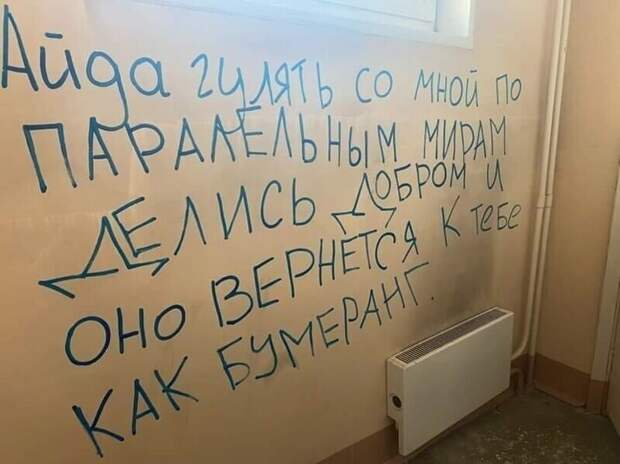 Айда гулять со мной по
ПАРАЛЕЛЬНЫМ МИРАМ
ДЕЛИСЬ ДОБРОМ И
ОНО ВЕРНЕТСЯ К ТЕБЕ
КАК БУМЕРАНГ.